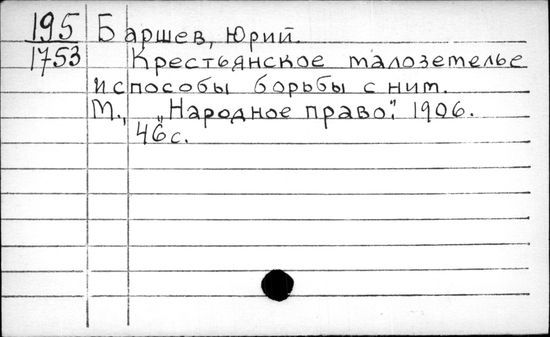 195 Баршев, Юрий.
1753 Крестьянское малоземелье
и способы борьбы с ним.
М., „Народное право". 1906.
46 с.